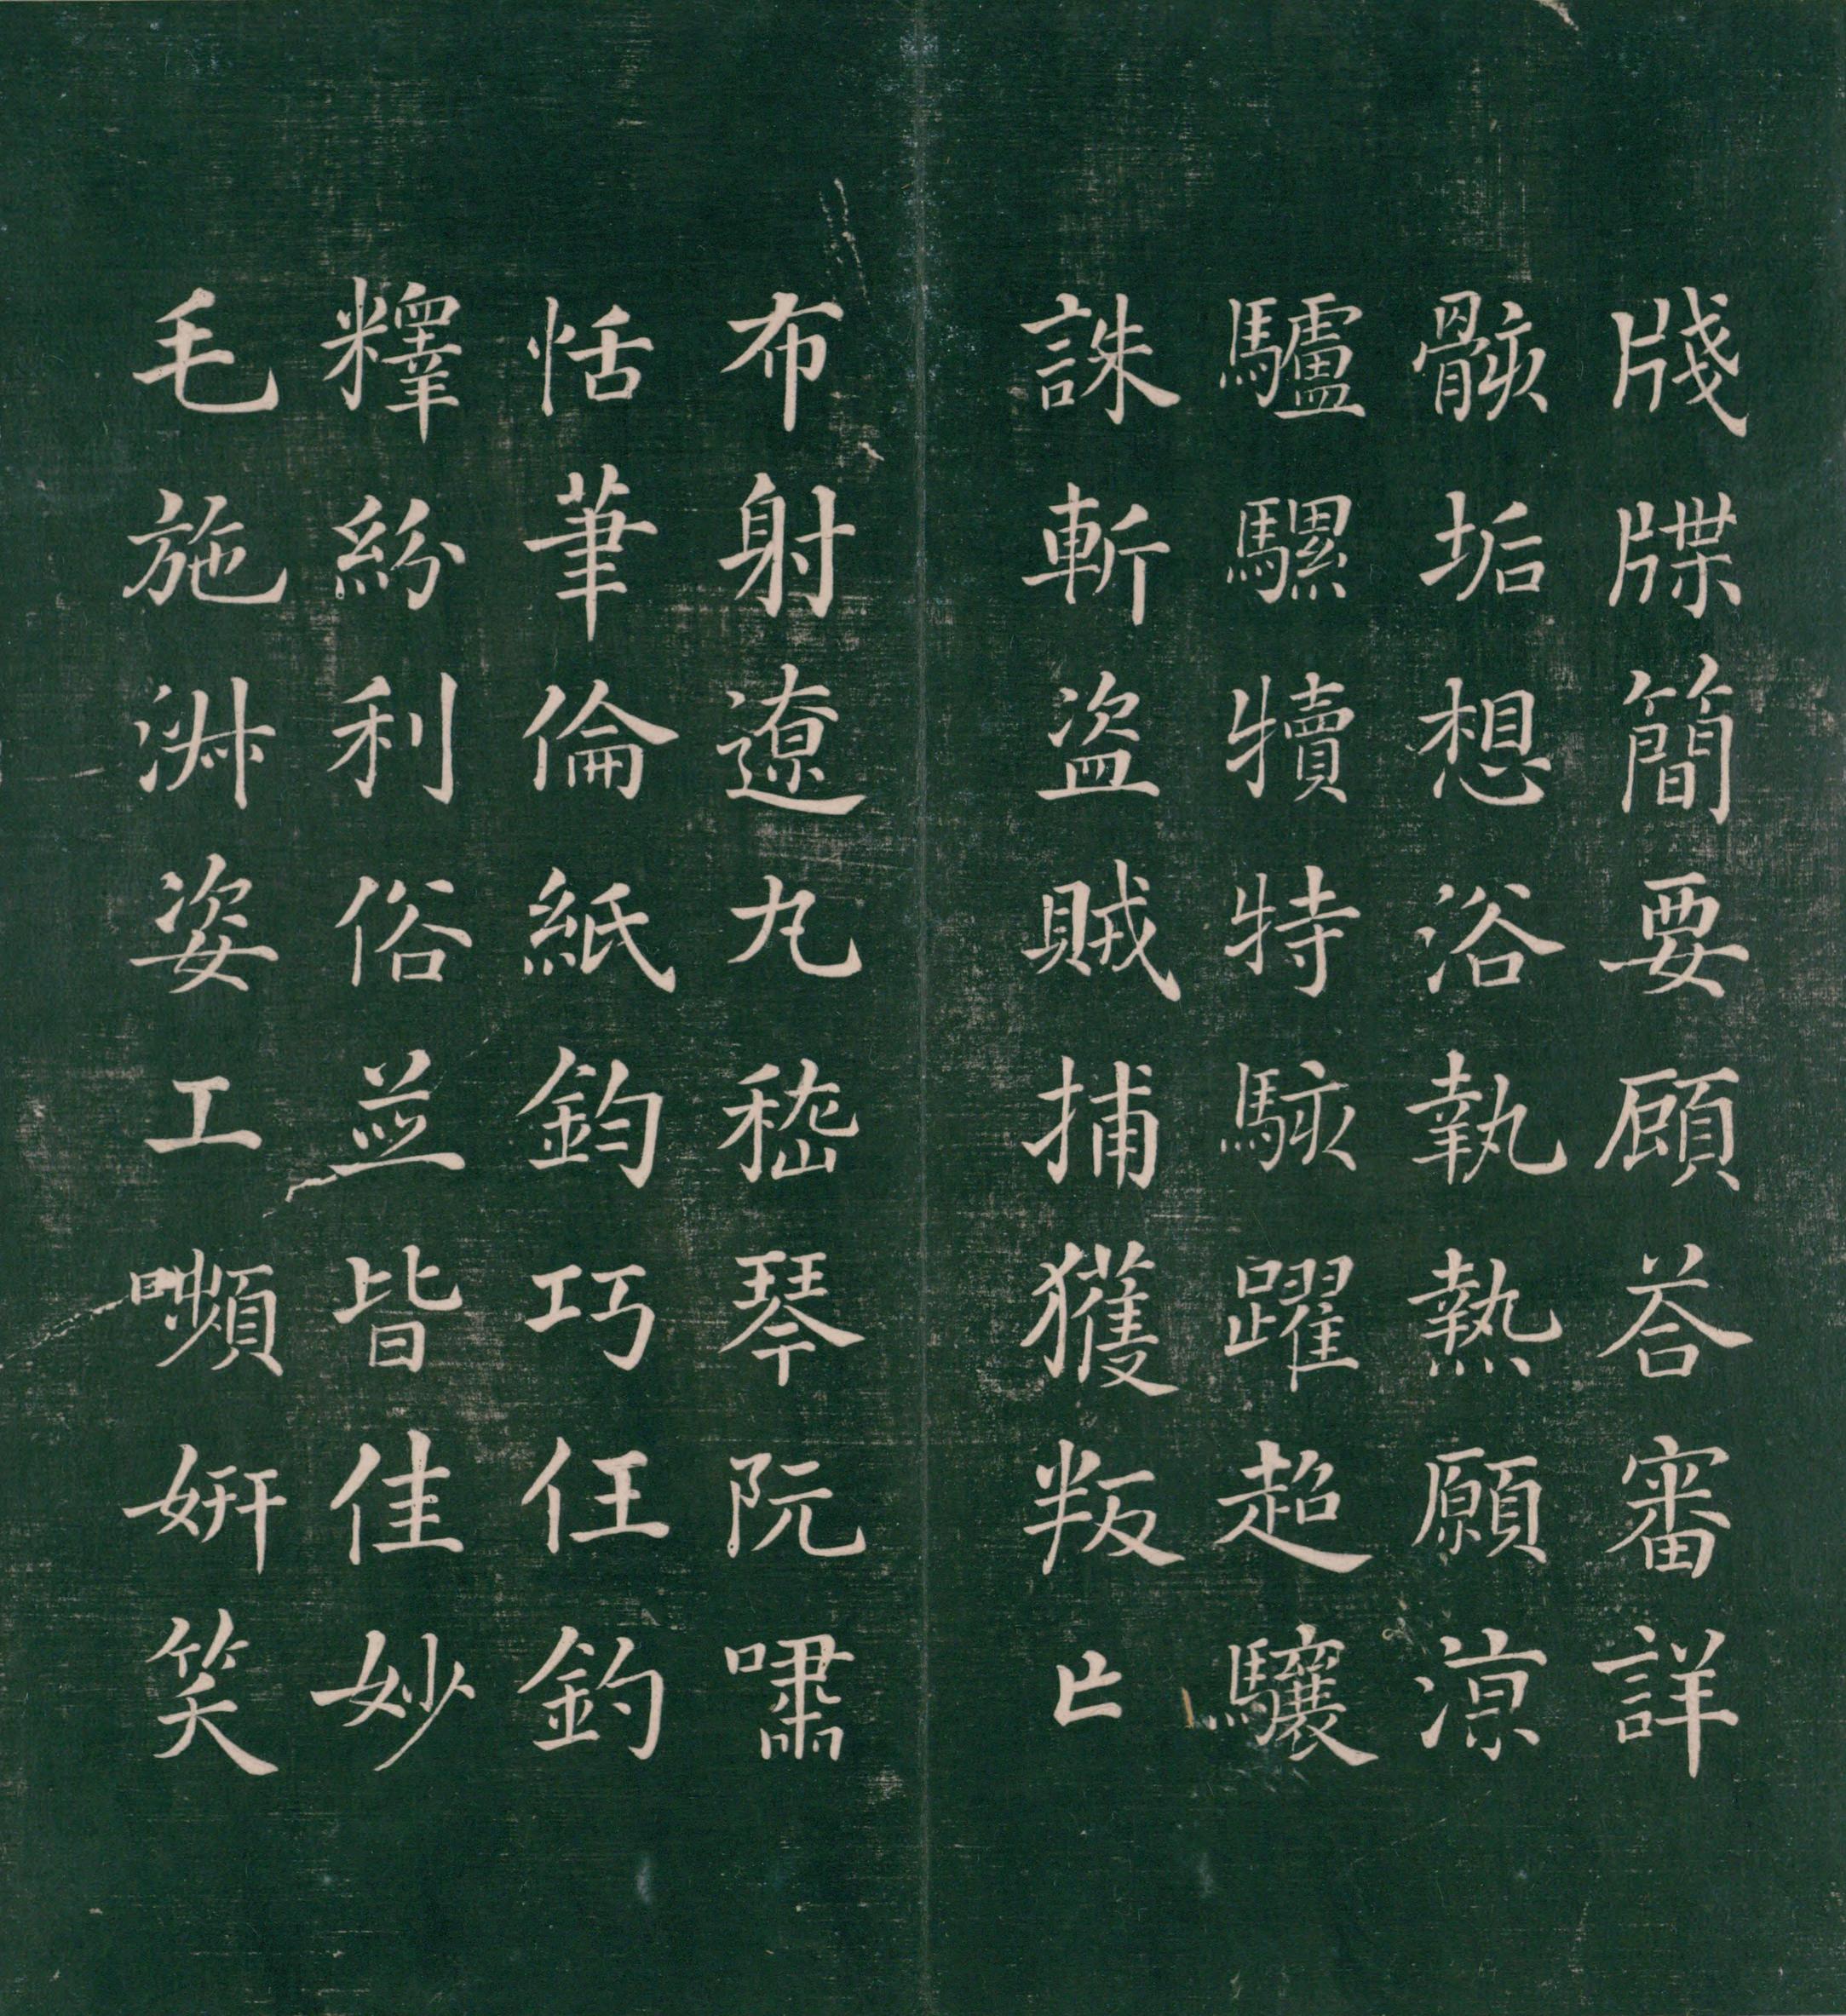 牋牒簡要顧荅審詳
骸垢想浴執熱願涼
驢騾犢特駭躍超驤
誅斬盗賊捕獲叛亡
布射遼丸嵇琴阮嘯
恬筆倫紙鈞巧任釣
釋紛利俗並皆佳妙
毛施淑姿工嚬妍笑